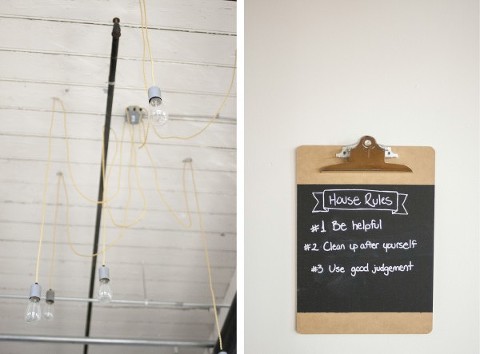 House Rules
#1 Be helpful
#2 Clean up after yourself
#3 Use good judgement